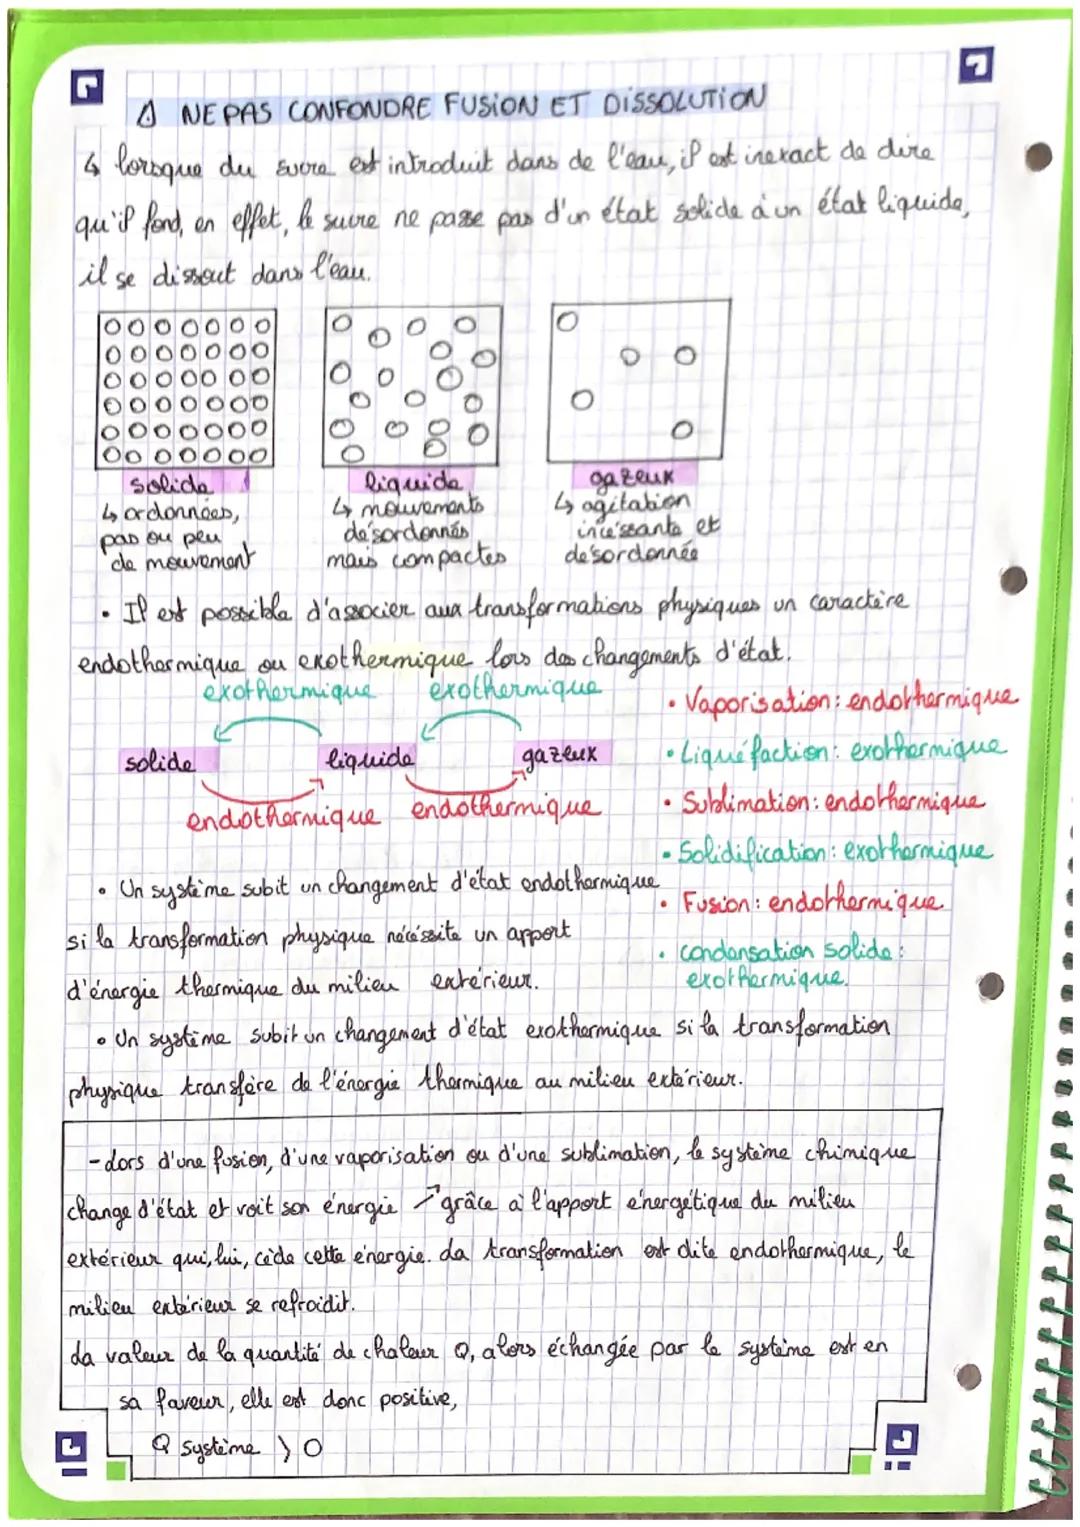 ⚠ NE PAS CONFONDRE FUSION ET DISSOLUTION
↳ lorsque du sucre est introduit dans de l'eau, il est inexact de dire
qu'il fond, en effet, le sucre ne passe pas d'un état solide à un état liquide,
il se dissout dans l'eau.
solide
↳ ordonnées,
pas ou peu
de mouvement
liquide
↳ mouvements
désordonnés
mais compactes
gazeux
↳ agitation
incéssante et
désordonnée
• Il est possible d'associer aux transformations physiques un caractère
endothermique ou exothermique lors des changements d'état.
exothermique exothermique
solide liquide gazeux
endothermique endothermique
• Vaporisation : endothermique
• Liquéfaction : exothermique
• Sublimation : endothermique
• Solidification : exothermique
• Fusion : endothermique
• condensation solide :
exothermique.
• Un système subit un changement d'état endothermique
si la transformation physique nécéssite un apport
d'énergie thermique du milieu extérieur.
• Un système subit un changement d'état exothermique si la transformation
physique transfère de l'énergie thermique au milieu extérieur.
- Lors d'une fusion, d'une vaporisation ou d'une sublimation, le système chimique
change d'état et voit son énergie ↗ grâce à l'apport énergétique du milieu
extérieur qui, lui, cède cette énergie. La transformation est dite endothermique, le
milieu extérieur se refroidit.
La valeur de la quantité de chaleur Q, alors échangée par le système est en
sa faveur, elle est donc positive,
Q système > 0